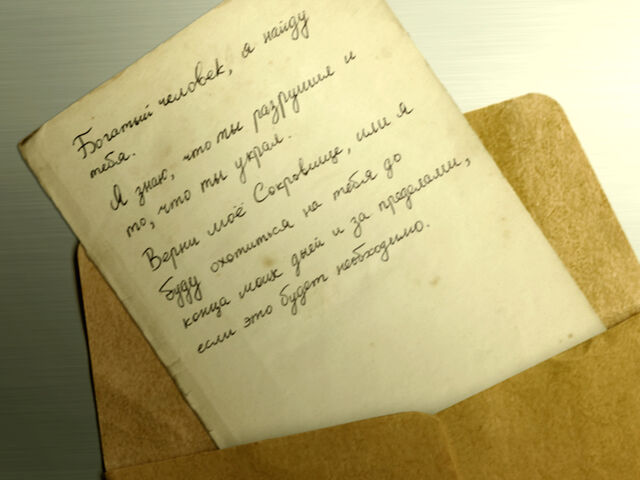 Богатый человек, я найду
тебя.
Я знаю, что ты разрушил и
то, что ты украл.
Верни моё Сокровище, или я
буду охотиться на тебя до
конца моих дней и за пределами,
если это будет необходимо.